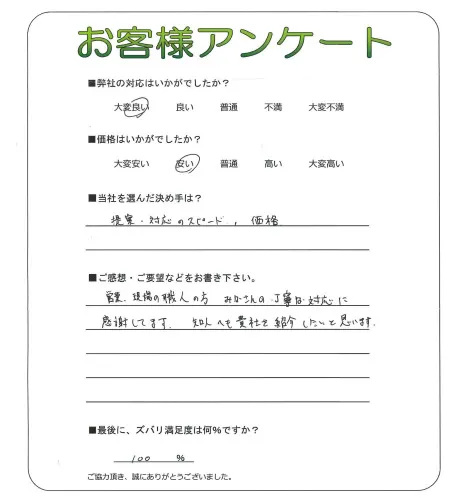 お客様アンケート
■弊社の対応はいかがでしたか？
大変良い 良い 普通 不満 大変不満
■価格はいかがでしたか？
大変安い 安い 普通 高い 大変高い
■当社を選んだ決め手は？
提案・対応のスピード、価格
■ご感想・ご要望などをお書き下さい。
営業、現場の職人の方 みなさんの丁寧な対応に
感謝してます。知人へも貴社を紹介したいと思います。
■最後に、ズバリ満足度は何%ですか？
100 %
ご協力頂き、誠にありがとうございました。